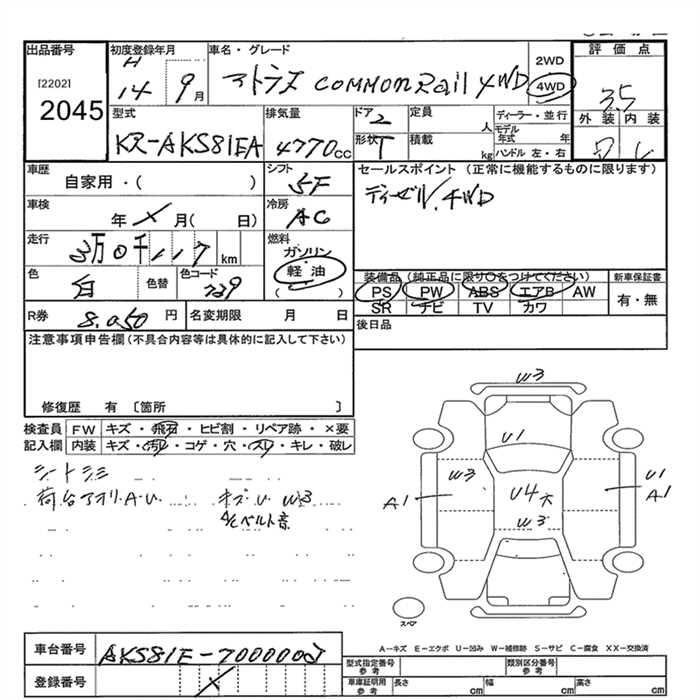 出品番号
[2202]
2045
初度登録年月
H
14 9月
車名・グレード
アトラス COMMON Rail 4WD
2WD
4WD
評価点
3.5
外装 内装
型式
KR-AKS81EA
排気量
4770cc
ドア 2
形状 T
定員 人
積載 kg
ディーラー・並行
モデル年式 年
ハンドル 左・右
車歴
自家用・( )
シフト
5F
セールスポイント (正常に機能するものに限ります)
ディーゼル. 4WD
車検
年 X 月( 日)
冷房
AC
走行
3万0千117km
燃料
ガソリン
軽油
( )
色
白
色替
色コード
739
装備品(純正品に限り○をつけてください)
PS PW ABS エアB AW
SR ナビ TV カワ
新車保証書
有・無
R券 8.050 円
名変期限 月 日
後日品
注意事項申告欄(不具合内容等は具体的に記入して下さい)
修復歴 有 〔箇所 〕
検査員記入欄
FW キズ・飛石・ヒビ割・リペア跡・×要
内装 キズ・汚れ・コゲ・穴・スレ・キレ・破レ
シートシミ
荷台アオリ.A.U.
キズ.U W3
A/Cベルト音
W3
U1
W3
U4大
W3
A1
U1
A1
スペア
A−キズ E−エクボ U−凹み W−補修跡 S−サビ C−腐食 XX−交換済
車台番号 AKS81E-700000J
登録番号 X
型式指定番号 参考
類別区分番号 参考
車庫証明用 参考
長さ cm
幅 cm
高さ cm